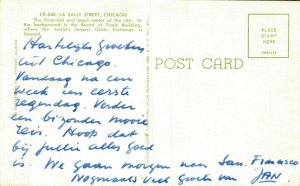 CK.240—LA SALLE STREET, CHICAGO
The financial and legal center of the city. In
the background is the Board of Trade Building, where
the world's largest Grain Exchange is
housed.
POST CARD
PLACE
STAMP
HERE
Hartelijke Groeten
uit Chicago.
Vandaag na een
week een eerste
regendag. Verder
een bijzonder mooie
reis. Hoop dat
bij jullie alles goed
is. We gaan morgen naar San. Francisco
Nogmaals veel groeten van
JAN.